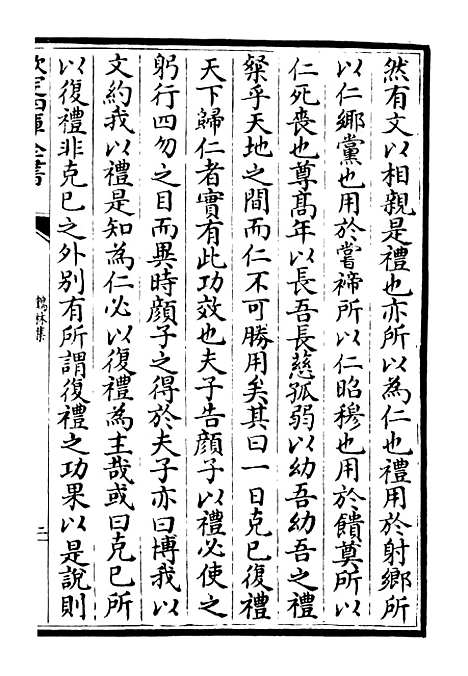 然有文以相親是禮也亦所以為仁也禮用於射鄉所
以仁鄉黨也用於嘗禘所以仁昭穆也用於饋奠所以
仁死喪也尊髙年以長吾長慈孤弱以幼吾幼吾之禮
粲乎天地之間而仁不可勝用矣其曰一日克已復禮
天下歸仁者實有此功效也夫子告顔子以禮必使之
躬行四勿之目而異時顔子之得於夫子亦曰博我以
文約我以禮是知為仁必以復禮為主哉或曰克已所
以復禮非克已之外別有所謂復禮之功果以是說則
欽定四庫全書
鶴林集
二